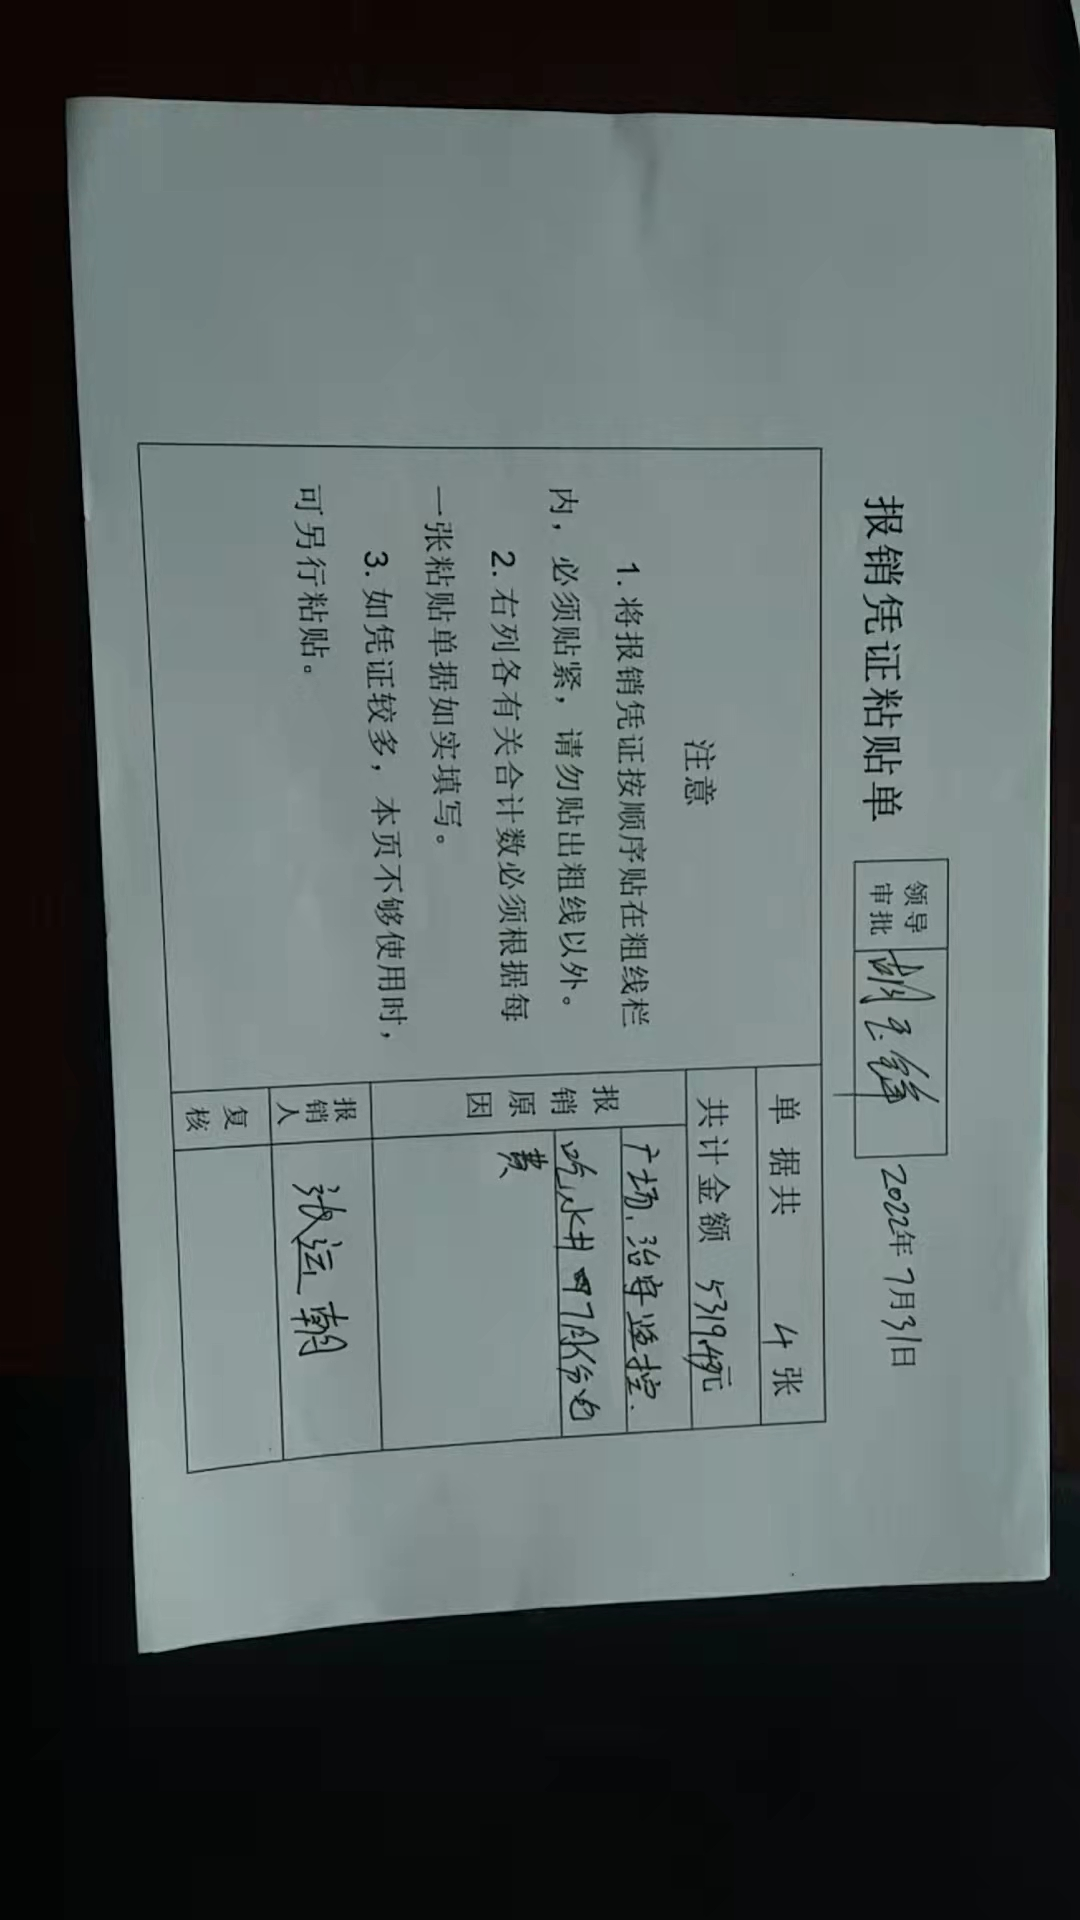 报销凭证粘贴单
领导
审批
2022年7月31日
注意
1. 将报销凭证按顺序贴在粗线栏
内，必须贴紧，请勿贴出粗线以外。
2. 右列各有关合计数必须根据每
一张粘贴单据如实填写。
3. 如凭证较多，本页不够使用时，
可另行粘贴。
单据共 4 张
共计金额 5319.49元
报销原因
广场、治安监控、
吃水井四7月份电
费
报销人 张运朝
复核